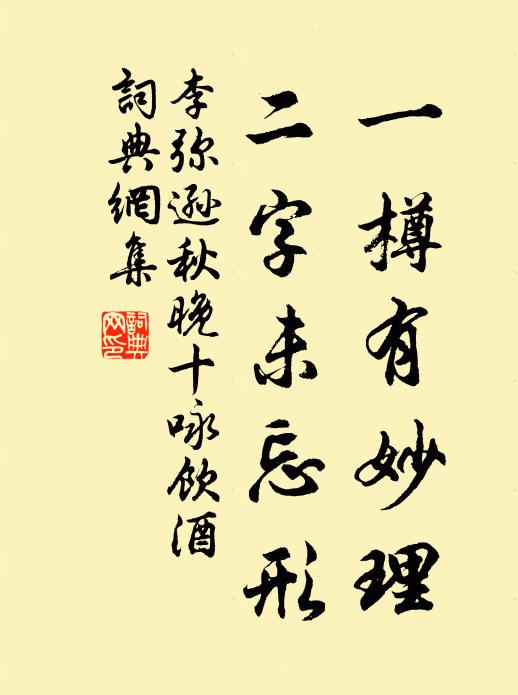 一樽有妙理
二字未忘形
李弥遜秋晚十咏飲酒
詞典網集
詞典网印